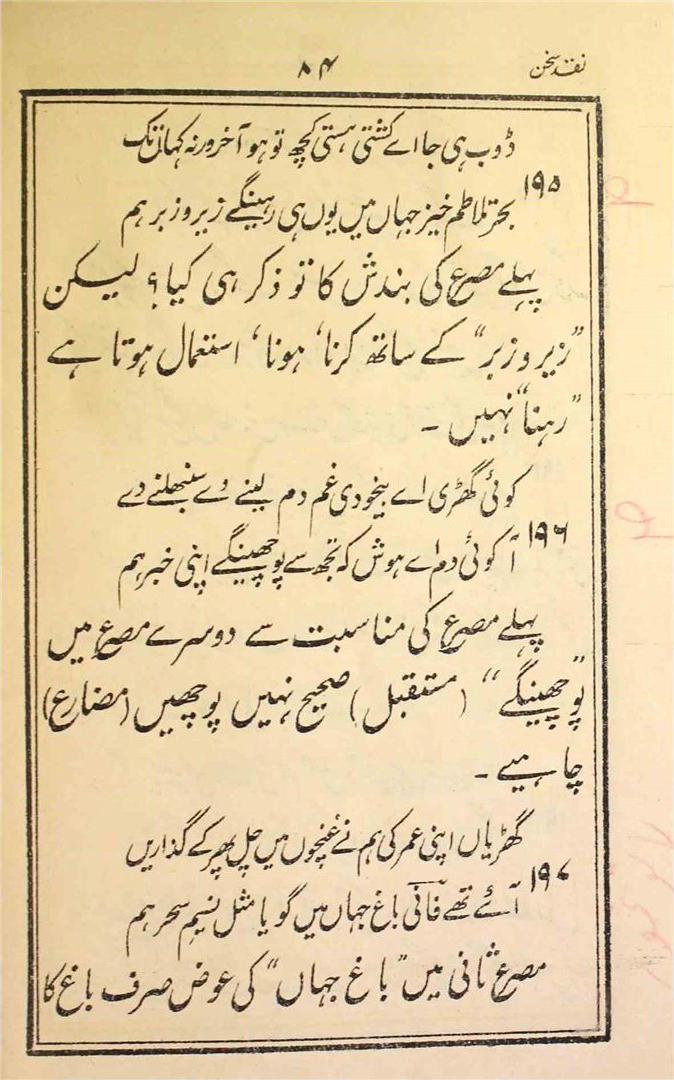 نقد سخن
۸۴
ڈوب ہی جا اے کشتی ہستی کچھ تو ہو آخر ورنہ کہاں تک
۱۹۵
بحر تلاطم خیز جہاں میں یوں ہی رہینگے زیر و زبر ہم
پہلے مصرع کی بندش کا تو ذکر ہی کیا؟ لیکن
”زیر و زبر“ کے ساتھ کرنا، ہونا، استعمال ہوتا ہے
”رہنا“ نہیں ۔
کوئی گھڑی اے بیخودی غم دم لینے دے سنبھلنے دے
۱۹۶
آ کوئی دم اے ہوش کہ تجھ سے پوچھینگے اپنی خبر ہم
پہلے مصرع کی مناسبت سے دوسرے مصرع میں
”پوچھینگے“ (مستقبل) صحیح نہیں پوچھیں (مضارع)
چاہیے ۔
گھڑیاں اپنی عمر کی ہم نے غنچوں میں چل پھر کے گذاریں
۱۹۷
آئے تھے فانی باغ جہاں میں گویا مثل نسیم سحر ہم
مصرع ثانی میں ”باغ جہاں“ کی عوض صرف باغ کا